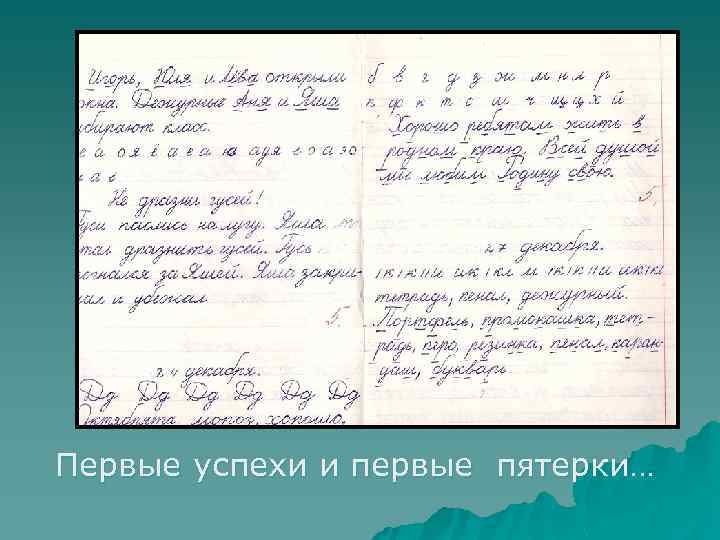 Игорь, Юля и Лёва открыли
окна. Дежурные Аня и Яша
убирают класс.
е а о я е а е а ю а д я е з а з о
а е
Не дразни гусей!
Гуси паслись на лугу. Яша
стал дразнить гусей. Гусь
погнался за Яшей. Яша закри-
чал и убежал
5.
24 декабря.
Дд Дд Дд Дд Дд Дд
Октябрята хорошо.
б в г д з ж м н л р
к ф к т с ш ч щ ц х й
Хорошо ребятам жить в
родном краю. Всей душой
мы любим Родину свою.
5.
27 декабря.
тетрадь, пенал, дежурный.
Портфель, промокашка, тет-
радь, перо, резинка, пенал, каран-
даш, букварь
Первые успехи и первые пятерки...